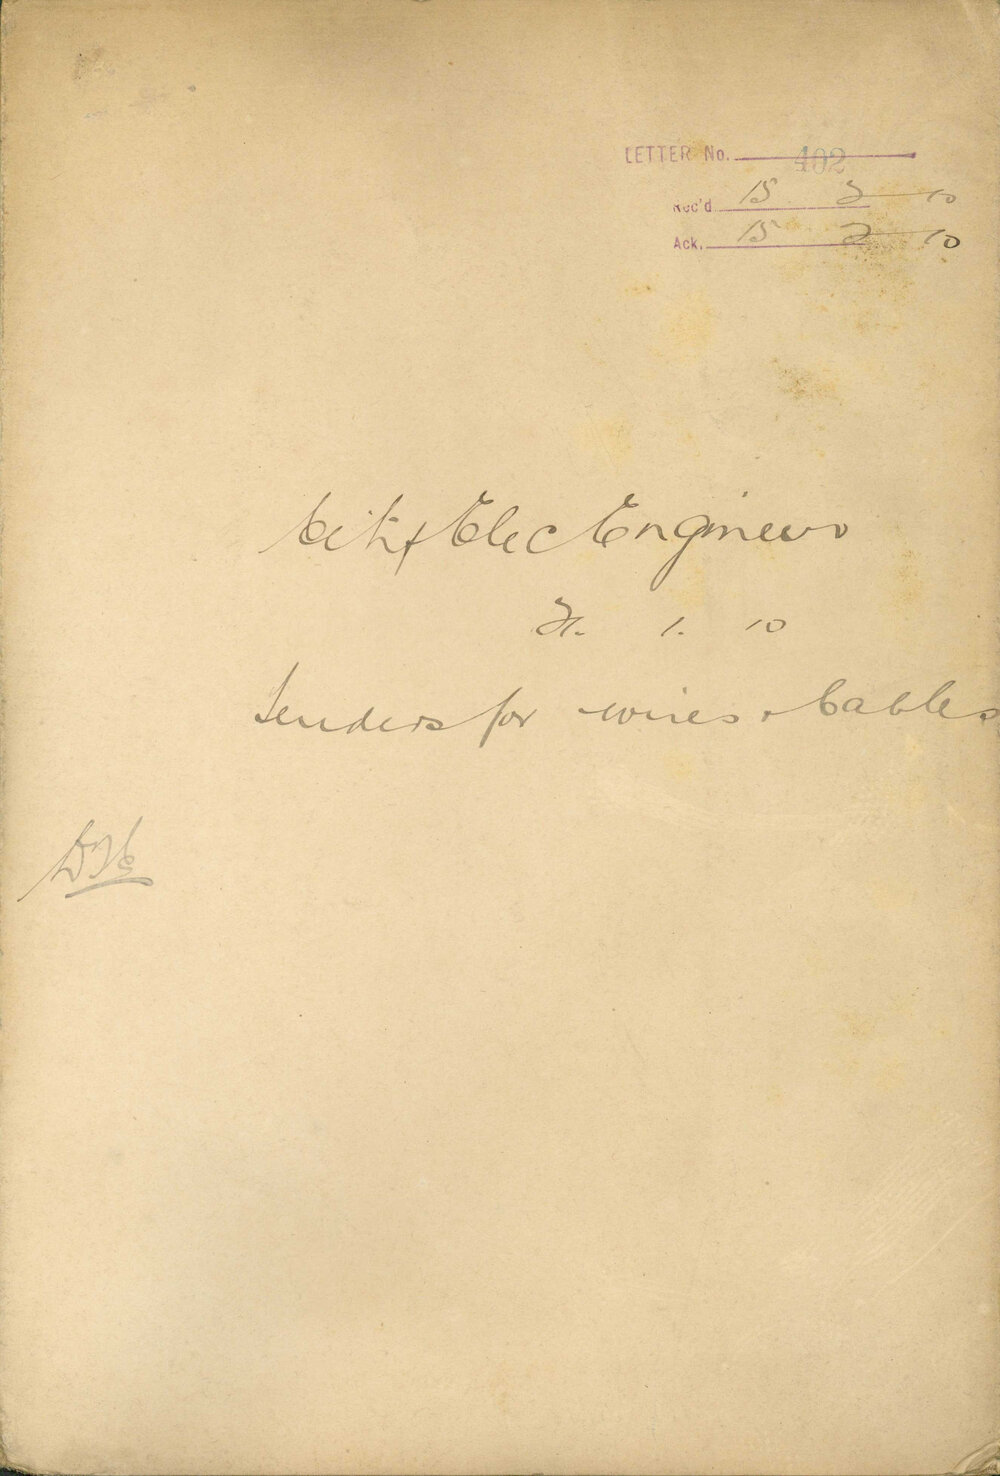 LETTER No. 402
Rec'd 15 2 10
Ack. 15 2 10
City Elec Engineer
21. 1. 10
Tenders for wires & Cables